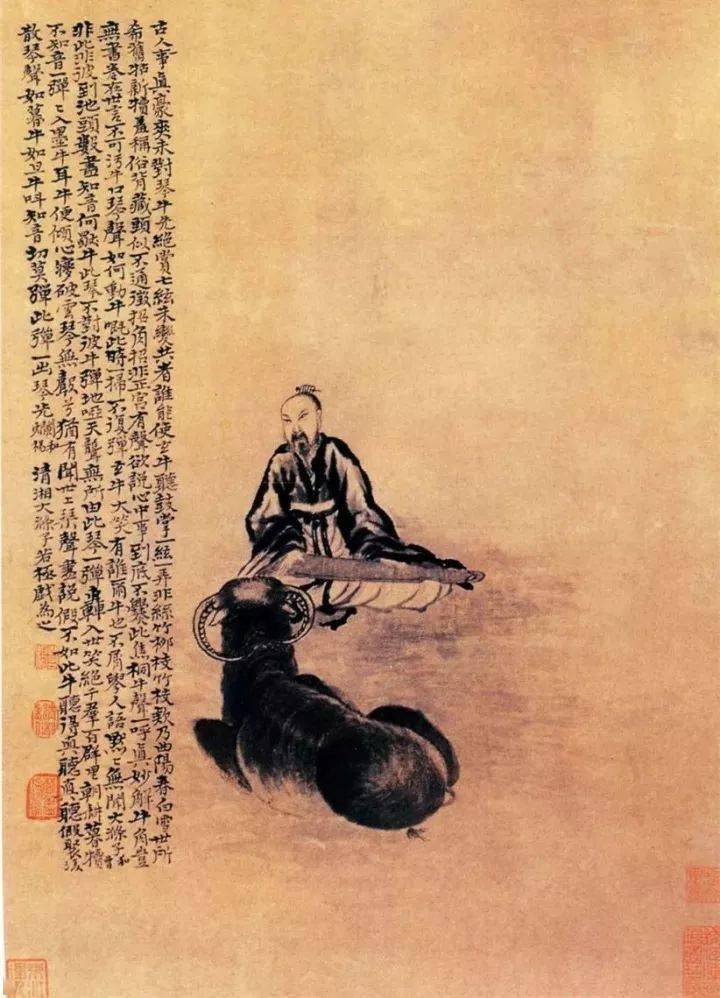 古人事真豪爽未對琴牛先絕賞七絃未變共者誰能使玄牛聽鼓掌一絃一弄非絲竹柳枝竹枝欸乃曲陽春白雪世所
希舊牯新犢羞稱俗背藏頭似不通徵招角招非正宮有聲欲說心中事到底不爨此焦桐牛聲一呼真妙解牛角豈
無書卷在世言不可污牛口琴聲如何動牛慨此時一掃不復彈玄牛大笑有誰爾牛也不屑學人語默ミ無聞大滌子和曹
非此非彼到池頭數盡知音何獨牛此琴不對彼牛彈地啞天聾無所由此琴一彈轟入世笑絕千羣百群里朝耕暮犢
不知音一彈ミ入墨牛耳牛便傾心寢破雲琴無聲兮猶有聞世上琴聲盡說假不如此牛聽得真聽真聽假聚復
散琴聲如暮牛如旦牛叫知音切莫彈此彈一出琴先爛和楊 清湘大滌子若極戲為之